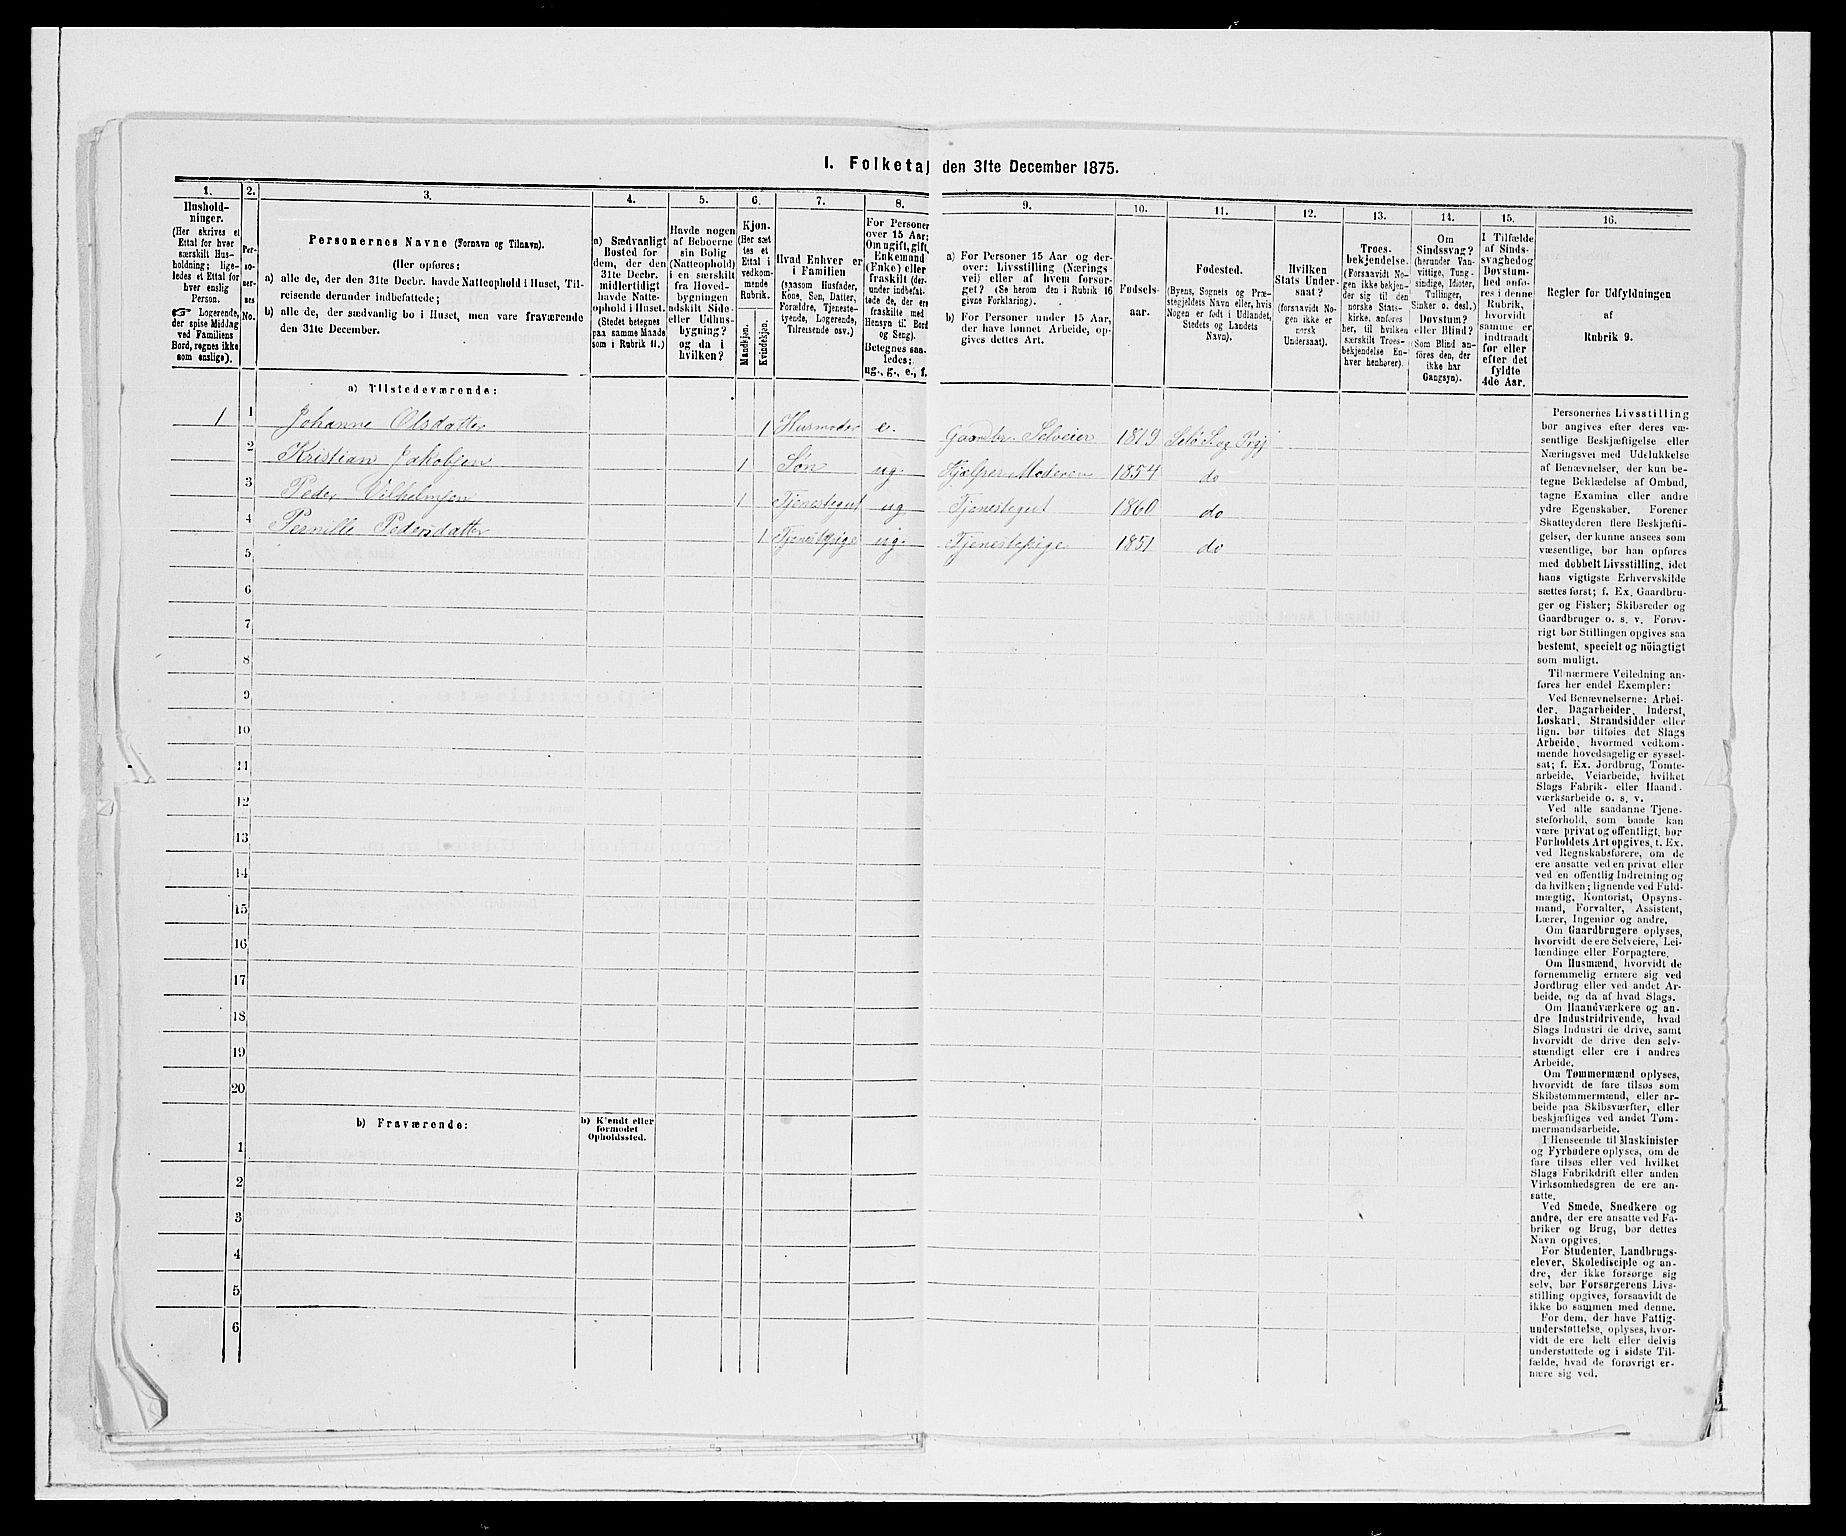 I. Folketal den 31te December 1875.
1. 2. 3. 4. 5. 6. 7. 8. 9. 10. 11. 12. 13. 14. 15. 16.
Hushold-
ninger.
(Her skrives et
Ettal for hver
særskilt Hus-
holdning; lige-
ledes et Ettal for
hver enslig
Person.
☞ Logerende,
der spise Middag
ved Familiens
Bord, regnes ikke
som enslige).
Per-
so-
ner-
nes
No.
Personernes Navne (Fornavn og Tilnavn).
(Her opføres:
a) alle de, der den 31te Decbr. havde Natteophold i Huset, Til-
reisende derunder indbefattede;
b) alle de, der sædvanlig bo i Huset, men vare fraværende
den 31te December.
a) Sædvanligt
Bosted for
dem, der den
31te Decbr.
midlertidigt
havde Natte-
ophold i Huset.
(Stedet betegnes
paa samme Maade
som i Rubrik 11.)
Havde nogen
af Beboerne
sin Bolig
(Natteophold)
i en særskilt
fra Hoved-
bygningen
adskilt Side-
eller Udhus-
bygning?
og da i
hvilken?
Kjøn.
(Her sæt
tes et
Ettal i
vedkom-
mende
Rubrik.
Mandkjøn.
Kvindekjøn.
Hvad Enhver er
i Familien
(saasom Husfader,
Kone, Søn, Datter,
Forældre, Tjeneste-
tyende, Logerende,
Tilreisende osv.)
For Personer
over 15 Aar:
Om ugift, gift,
Enkemand
(Enke) eller
fraskilt (der-
under indbefat-
tede de, der ere
fraskilte med
Hensyn til Bord
og Seng).
Betegnes saa-
ledes:
ug., g., e., f.
a) For Personer 15 Aar og der-
over: Livsstilling (Nærings-
vei) eller af hvem forsør-
get? (Se herom den i Rubrik 16
givne Forklaring).
b) For Personer under 15 Aar,
der have lønnet Arbeide, op-
gives dettes Art.
Fødsels-
aar.
Fødested.
(Byens, Sognets og Præ-
stegjeldets Navn eller, hvis
Nogen er født i Udlandet,
Stedets og Landets
Navn).
Hvilken
Stats Under-
saat?
(forsaavidt No-
gen ikke er
norsk
Undersaat).
Troes-
bekjendelse.
(Forsaavidt No-
gen ikke bekjen-
der sig til den
norske Stats-
kirke, anføres
her, til hvilken
særskilt Troes-
bekjendelse En-
hver henhører).
Om
Sindssvag?
(herunder Van-
vittige, Tung-
sindige, Idioter,
Tullinger,
Sinker o. desl.)
Døvstum?
eller Blind?
(Som Blind an-
føres den, der
ikke har
Gangsyn).
I Tilfælde
af Sinds-
svaghed og
Døvstum-
hed anfø-
res i denne
Rubrik,
hvorvidt
samme er
indtraadt
før eller
efter det
fyldte
4de Aar.
Regler for Udfyldningen
af
Rubrik 9.
a) Tilstedeværende:
1 1 Johanne Olsdatter 1 Husmoder e. Gaardbr. Selveier 1819 Selø S. og Prgj
2 Kristian Jakobsen 1 Søn ug. Hjælper Moderen 1854 do
3 Peder Vilhelmsen 1 Tjenestegut ug Tjenestegut 1860 do
4 Pernille Pedersdatter 1 Tjenestepige ug. Tjenestepige 1851 do
5
6
7
8
9
10
11
12
13
14
15
16
17
18
19
20
b) Fraværende:
b) Kjendt eller
formodet
Opholdssted.
1
2
3
4
5
6
Personernes Livsstilling
bør angives efter deres væ-
sentlige Beskjæftigelse eller
Næringsvei med Udelukkelse
af Benævnelser, der kun be-
tegne Beklædelse af Ombud,
tagne Examina eller andre
ydre Egenskaber. Forener
Skatteyderen flere Beskjæfti-
gelser, der kunne ansees som
væsentlige, bør han opføres
med dobbelt Livsstilling, idet
hans vigtigste Erhvervskilde
sættes først; f. Ex. Gaardbru-
ger og Fisker; Skibsreder og
Gaardbruger o. s. v. Forøv-
rigt bør Stillingen opgives saa
bestemt, specielt og nöiagtigt
som muligt.
Til nærmere Veiledning an-
føres her endel Exempler:
Ved Benævnelserne: Arbei-
der, Dagarbeider, Inderst,
Løskarl, Strandsidder eller
lign. bør tilføies det Slags
Arbeide, hvormed vedkom-
mende hovedsagelig er syssel-
sat; f. Ex. Jordbrug, Tomte-
arbeide, Veiarbeide, hvilket
Slags Fabrik- eller Haand-
værksarbeide o. s. v.
Ved alle saadanne Tjene-
steforhold, som baade kan
være privat og offentligt, bør
Forholdets Art opgives, t. Ex.
ved Regnskabsførere, om de
ere ansatte ved en privat eller
ved en offentlig Indretning og
da hvilken; lignende ved Fuld-
mægtig, Kontorist, Opsyns-
mand, Forvalter, Assistent,
Lærer, Ingeniør og andre.
Om Gaardbrugere oplyses,
hvorvidt de ere Selveiere, Lei-
lændinge eller Forpagtere.
Om Husmænd, hvorvidt de
fornemmelig ernære sig ved
Jordbrug eller ved andet Ar-
beide, og da af hvad Slags.
Om Haandværkere og an-
dre Industridrivende, hvad
Slags Industri de drive, samt
hvorvidt de drive den selv-
stændigt eller ere i andres
Arbeide.
Om Tømmermænd oplyses,
hvorvidt de fare tilsøs som
Skibstømmermænd, eller ar-
beide paa Skibsværfter, eller
beskjæftiges ved andet Tøm-
mermandsarbeide.
I Henseende til Maskinister
og Fyrbødere oplyses, om de
fare tilsøs eller ved hvilket
Slags Fabrikdrift eller anden
Virksomhedsgren de ere an-
satte.
Ved Smede, Snedkere og
andre, der ere ansatte ved Fa-
briker og Brug, bør dettes
Navn opgives.
For Studenter, Landbrugs-
elever, Skoledisciple og an-
dre, der ikke forsørge sig
selv, bør Forsørgerens Livs-
stilling opgives, forsaavidt de
ikke bo sammen med denne.
For dem, der have Fattig-
understøttelse, oplyses, hvor-
vidt de ere helt eller delvis
understøttede og i sidste Til-
fælde, hvad de forøvrigt er-
nære sig ved.